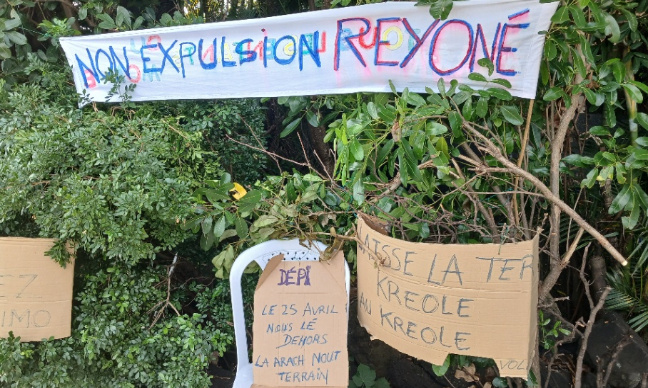 NON EXPULSION REYONÉ
EZ
IMO
DÉPI
LE 25 AVRIL
NOUS LÉ
DEHORS
LA ARACH NOUT
TERRAIN
LAISSE LA TER
KREOLE
AU KREOLE
VOL